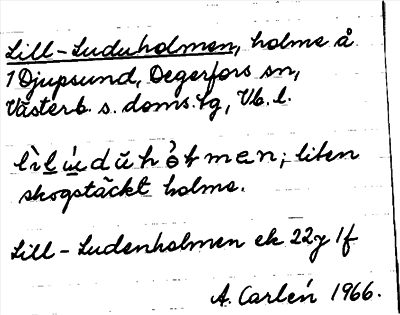 Lill-Luduholmen, holme å
1 Djupsund, Degerfors sn,
Västerb. s. doms.tg, Vb. l.
liten
skogstäckt holme.
Lill-Ludenholmen ek 22g 1f
A. Carlén 1966.